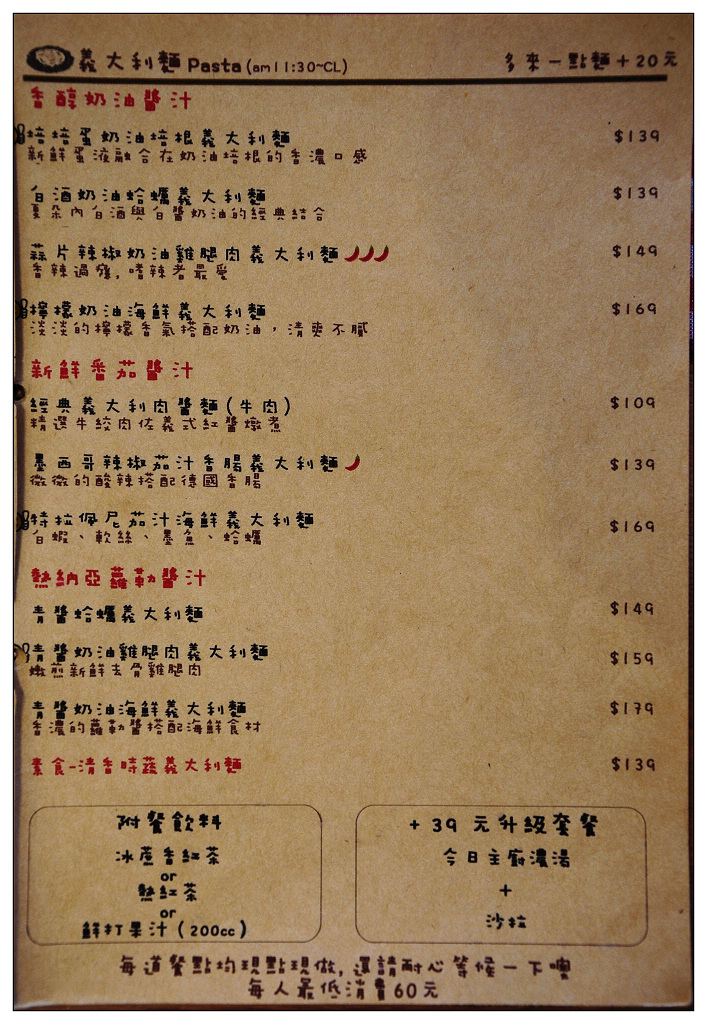 義大利麵 Pasta (am11:30~CL) 多來一點麵+20元
香醇奶油醬汁
培培蛋奶油培根義大利麵 $139
新鮮蛋液融合在奶油培根的香濃口感
白酒奶油蛤蠣義大利麵 $139
夏朵內白酒與白醬奶油的經典結合
蒜片辣椒奶油雞腿肉義大利麵 $149
香辣過癮,嗜辣者最愛
檸檬奶油海鮮義大利麵 $169
淡淡的檸檬香氣搭配奶油,清爽不膩
新鮮番茄醬汁
經典義大利肉醬麵(牛肉) $109
精選牛絞肉佐義式紅醬燉煮
墨西哥辣椒茄汁香腸義大利麵 $139
微微的酸辣搭配德國香腸
特拉佩尼茄汁海鮮義大利麵 $169
白蝦、軟絲、墨魚、蛤蠣
熱納亞蘿勒醬汁
青醬蛤蠣義大利麵 $149
青醬奶油雞腿肉義大利麵 $159
嫩煎新鮮去骨雞腿肉
青醬奶油海鮮義大利麵 $179
香濃的蘿勒醬搭配海鮮食材
素食-清香時蔬義大利麵 $139
附餐飲料
冰蔗香紅茶
or
熱紅茶
or
鮮打果汁(200cc)
+39元升級套餐
今日主廚濃湯
+
沙拉
每道餐點均現點現做,還請耐心等候一下噢
每人最低消費60元